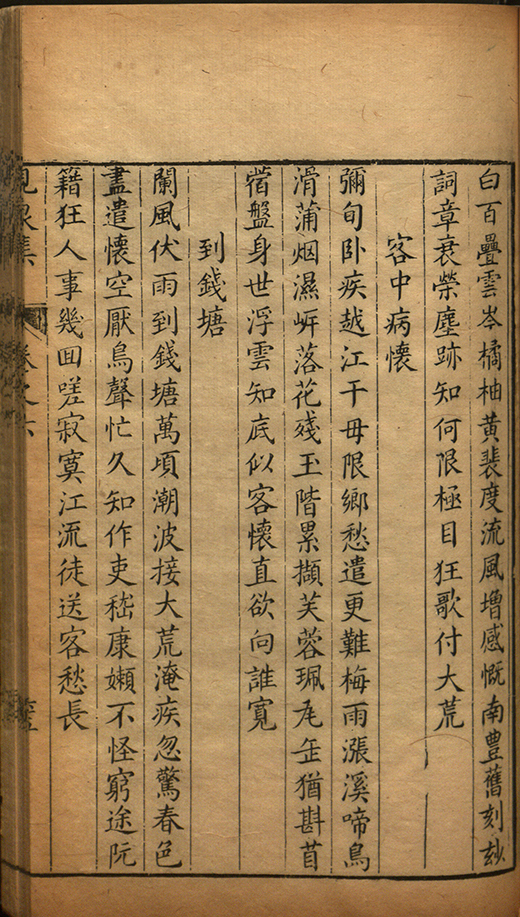 白百疊雲岑橘柚黃裴度流風增感慨南豊舊刻玅
詞章衰榮塵跡知何限極目狂歌付大荒
客中病懷
彌旬卧疾越江干毋限鄉愁遣更難梅雨漲溪啼鳥
滑蒲烟濕㟁落花殘玉階累擷芙蓉珮瓦缶猶斟苜
蓿盤身世浮雲知底似客懷直欲向誰寬
到錢塘
闌風伏雨到錢塘萬頃潮波接大荒淹疾忽驚春色
盡遣懷空厭鳥聲忙久知作吏嵇康嬾不怪窮途阮
籍狂人事幾囬嗟寂寞江流徒送客愁長
集 卷之六